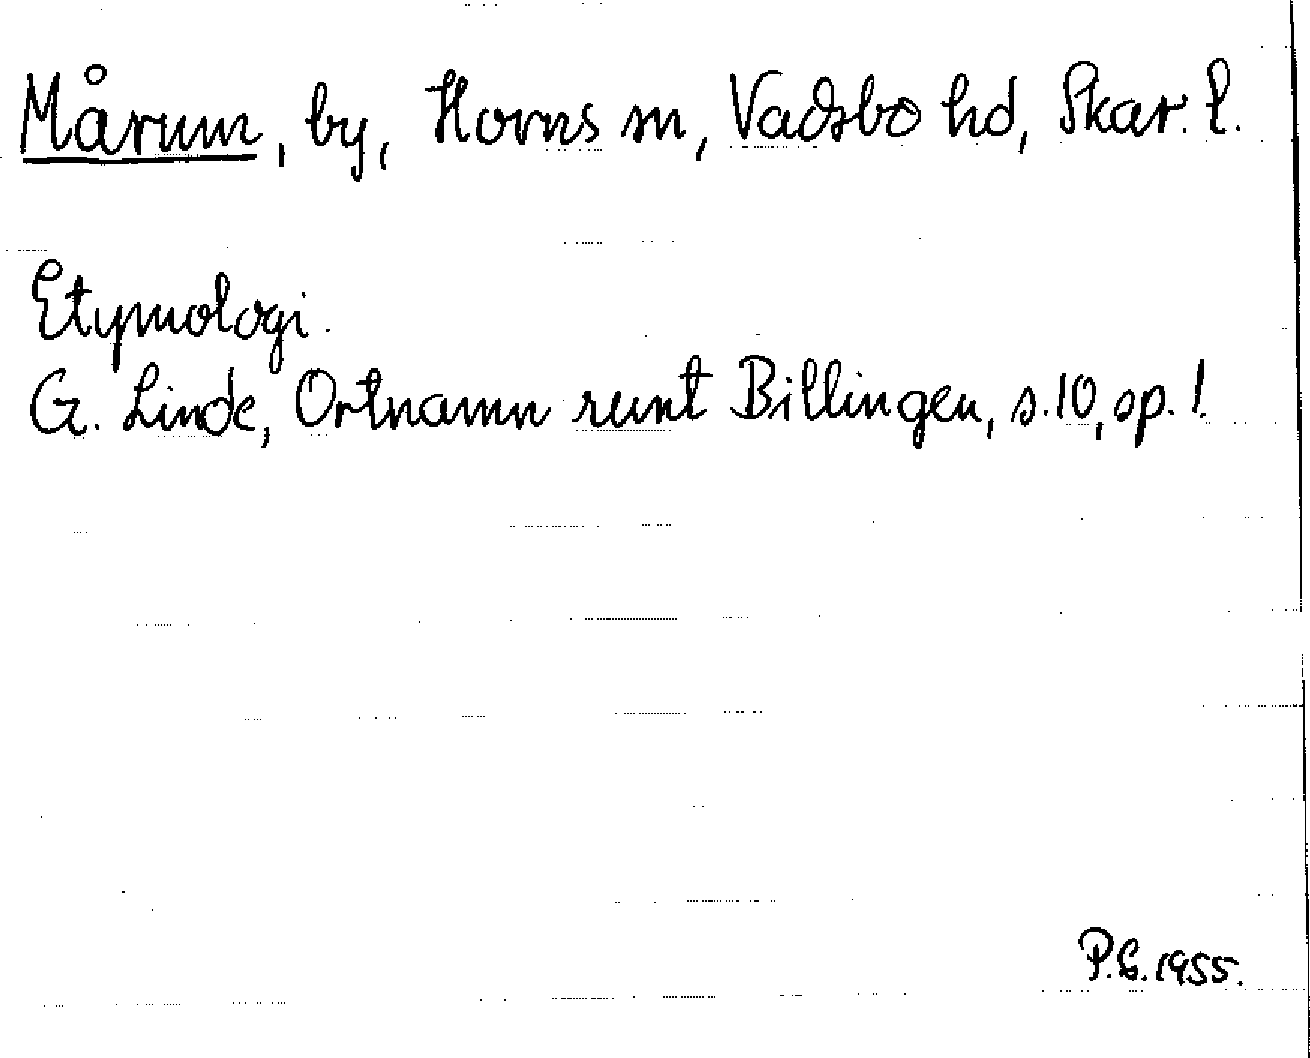 Mårum, by, Horns sn, Vadsbo hd, Skar. l.
Etymologi.
G. Linde, Ortnamn runt Billingen, s. 10, sp. 1.
P.G. 1955.